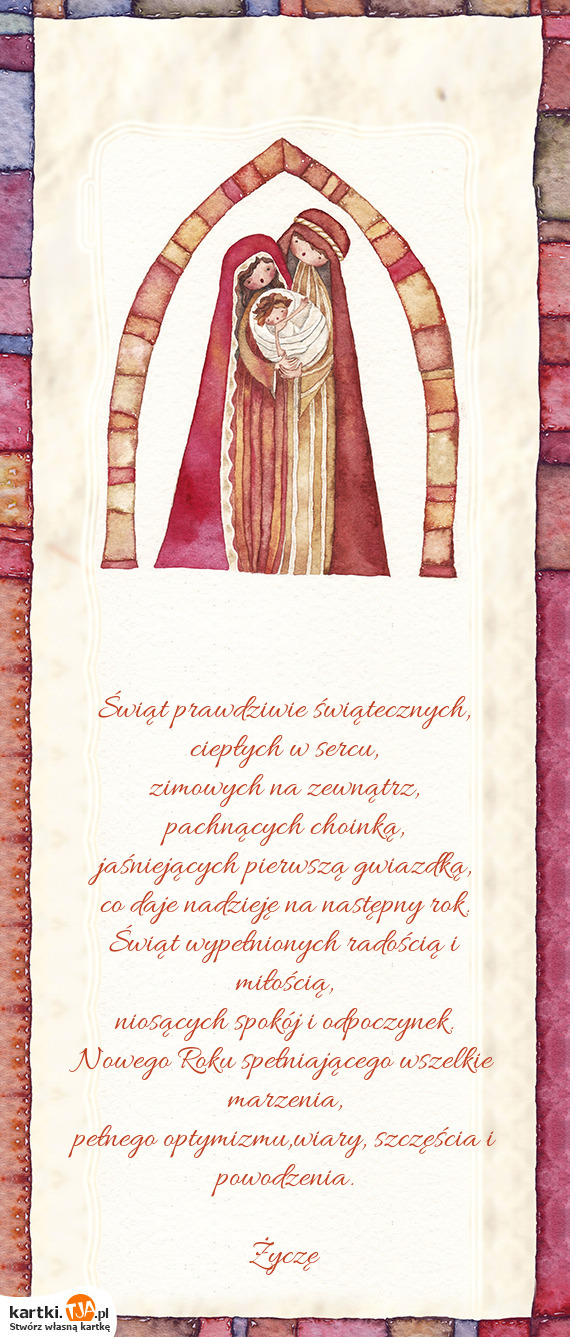 Świąt prawdziwie świątecznych,
ciepłych w sercu,
zimowych na zewnątrz,
pachnących choinką,
jaśniejących pierwszą gwiazdką,
co daje nadzieję na następny rok.
Świąt wypełnionych radością i
miłością,
niosących spokój i odpoczynek.
Nowego Roku spełniającego wszelkie
marzenia,
pełnego optymizmu,wiary, szczęścia i
powodzenia.
Życzę
kartki.TJA.pl
Stwórz własną kartkę